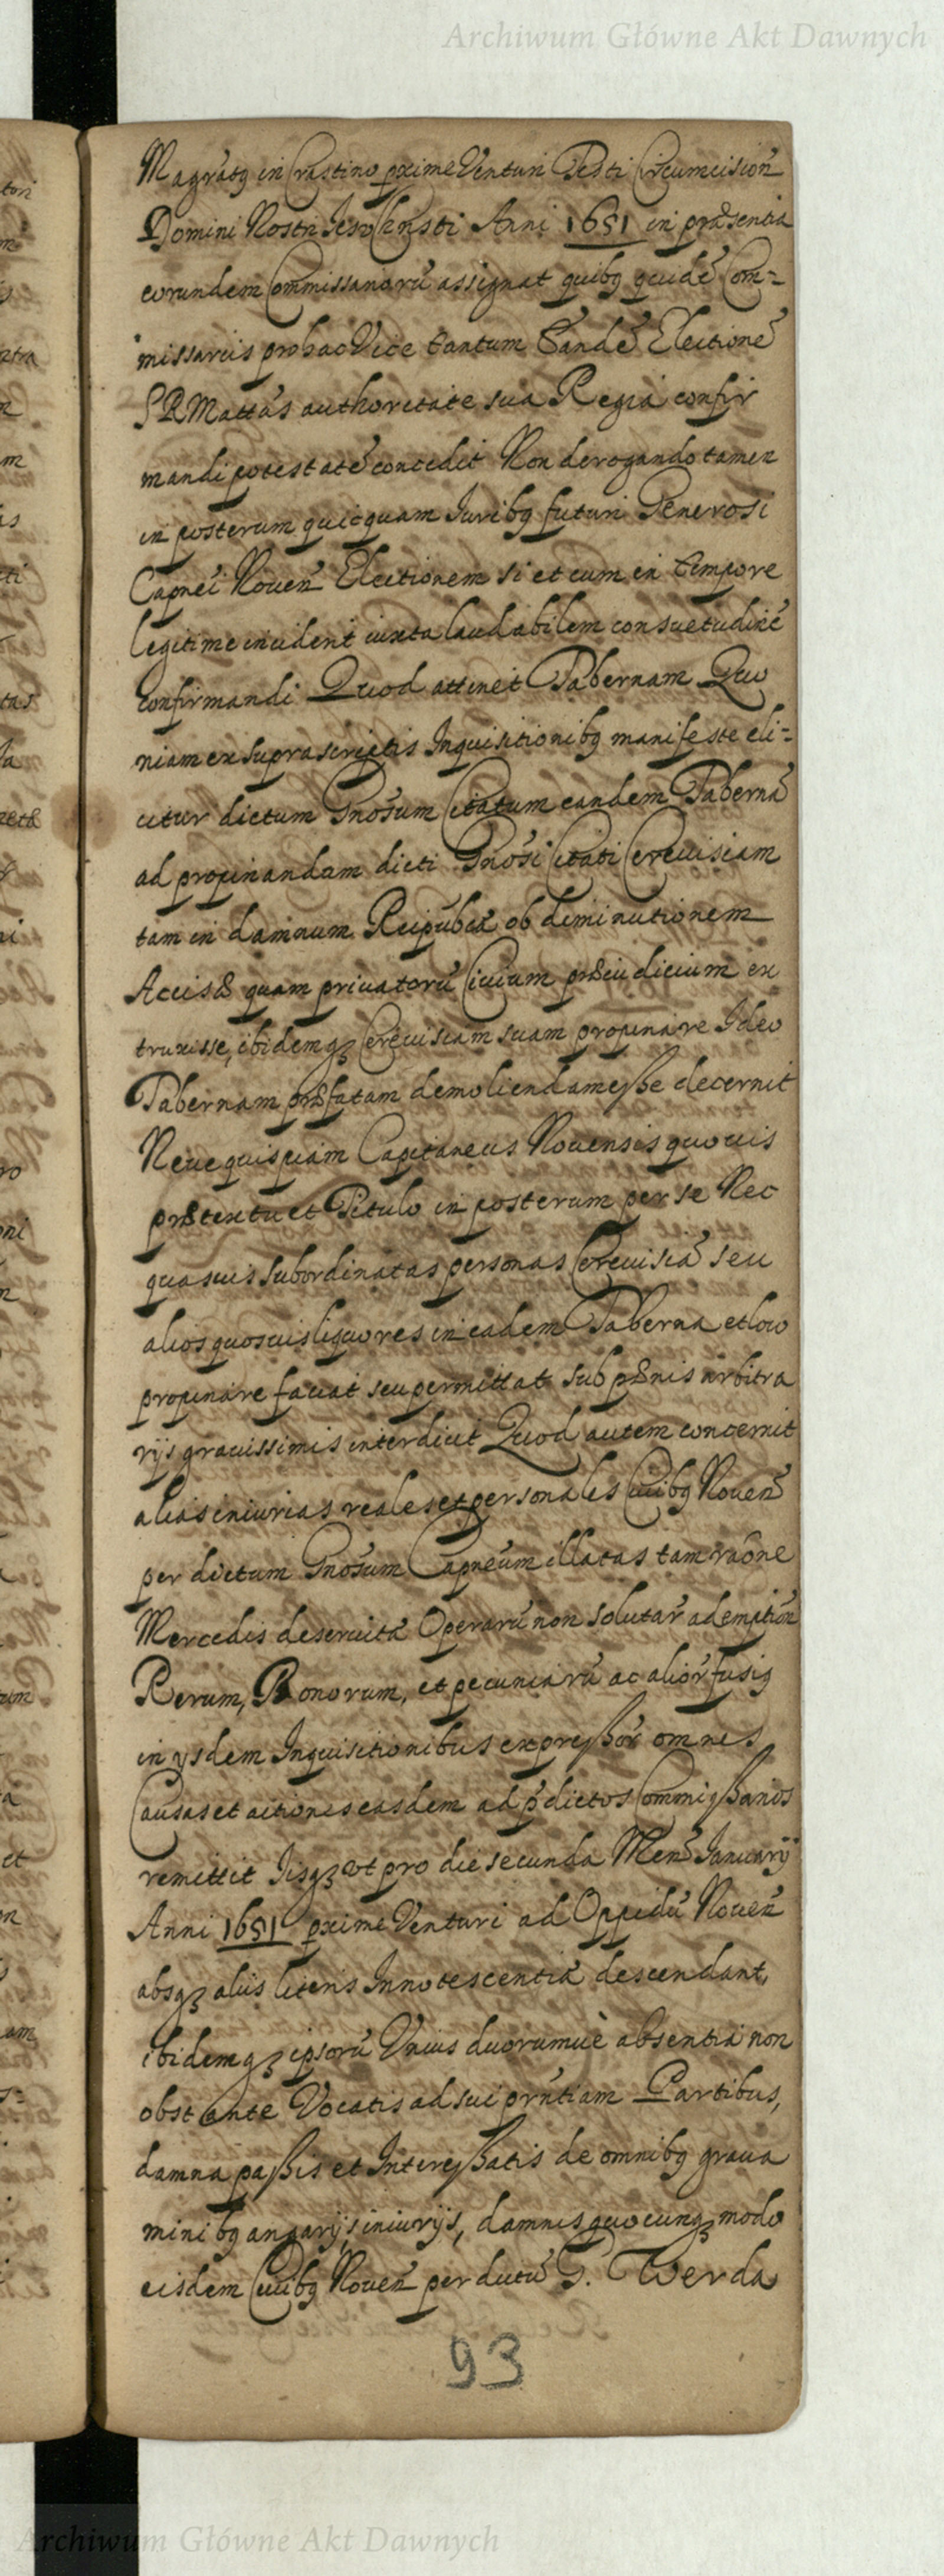 Archiwum Główne Akt Dawnych
Magratq in Crastino pxime Venturi Festi Circumcision
Domini Nostri Iesv Christi Anni 1651 in præsentia
eorundem Commissariorū assignat quibq quidē Com=
missarijs pro hac Vice tantum Eandē Electionē
SRMattas authoritate sua Regia confir
mandi potestatē concedit Non derogando tamen
in posterum quicquam Iuribq futuri Generosi
Capnei Noven Electionem si et cum in tempore
legitime incident iuxta laudabilem consuetudinē
confirmandi Quod attinet Tabernam Quo
niam ex suprascriptis Inquisitionibq manifeste eli=
citur dictum Gnosum Citatum eandem Tabernā
ad propinandam dicti Gnosi Citati Cereuisiam
tam in damnum Reipubcæ ob diminutionem
Accisæ quam priuatorū Ciuium præiudicium ex
truxisse, ibidemqꝫ Cereuisiam suam propinare Ideo
Tabernam præfatam demoliendam eſse decernit
Neue quispiam Capitaneus Nouensis quouis
prætextu et Titulo in posterum per se Nec
quasuis subordinatas personas Cereuisiā seu
alios quosuis liquores in eadem Taberna et loco
propinare faciat seu permittat sub pænis arbitra
rijs grauissimis interdicit Quod autem concernit
alias iniurias reales et personales Ciuibq Noven
per dictum Gnosum Capneum illatas tam raone
Mercedis deseruitæ Operarū non solutar ademption
Rerum, Bonorum, et pecuniarū ac alior fusis
in ysdem Inquisitionibus expreſsor omnes
Causas et actiones easdem ad p̄dictos Commiſsarios
remittit Iisqꝫ vt pro die secunda Men Ianuarij
Anni 1651 pxime Venturi ad Oppidū Noven
absqꝫ aliis literis Innotescentiæ descendant,
ibidemqꝫ ipsorū Vnius duorumuè absentia non
obstante Vocatis ad sui prntiam Partibus,
damna paſsis et Intereſsatis de omnibq graua
minibq angarijs, iniurijs, damnis quocunqꝫ modo
eisdem Ciuibq Noven per dictū G. Werda
93
Archiwum Główne Akt Dawnych